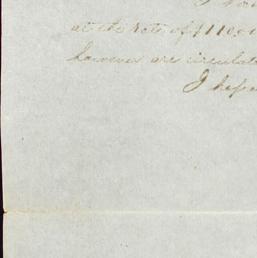 at the rate of $110.0
however are circulate
I hope